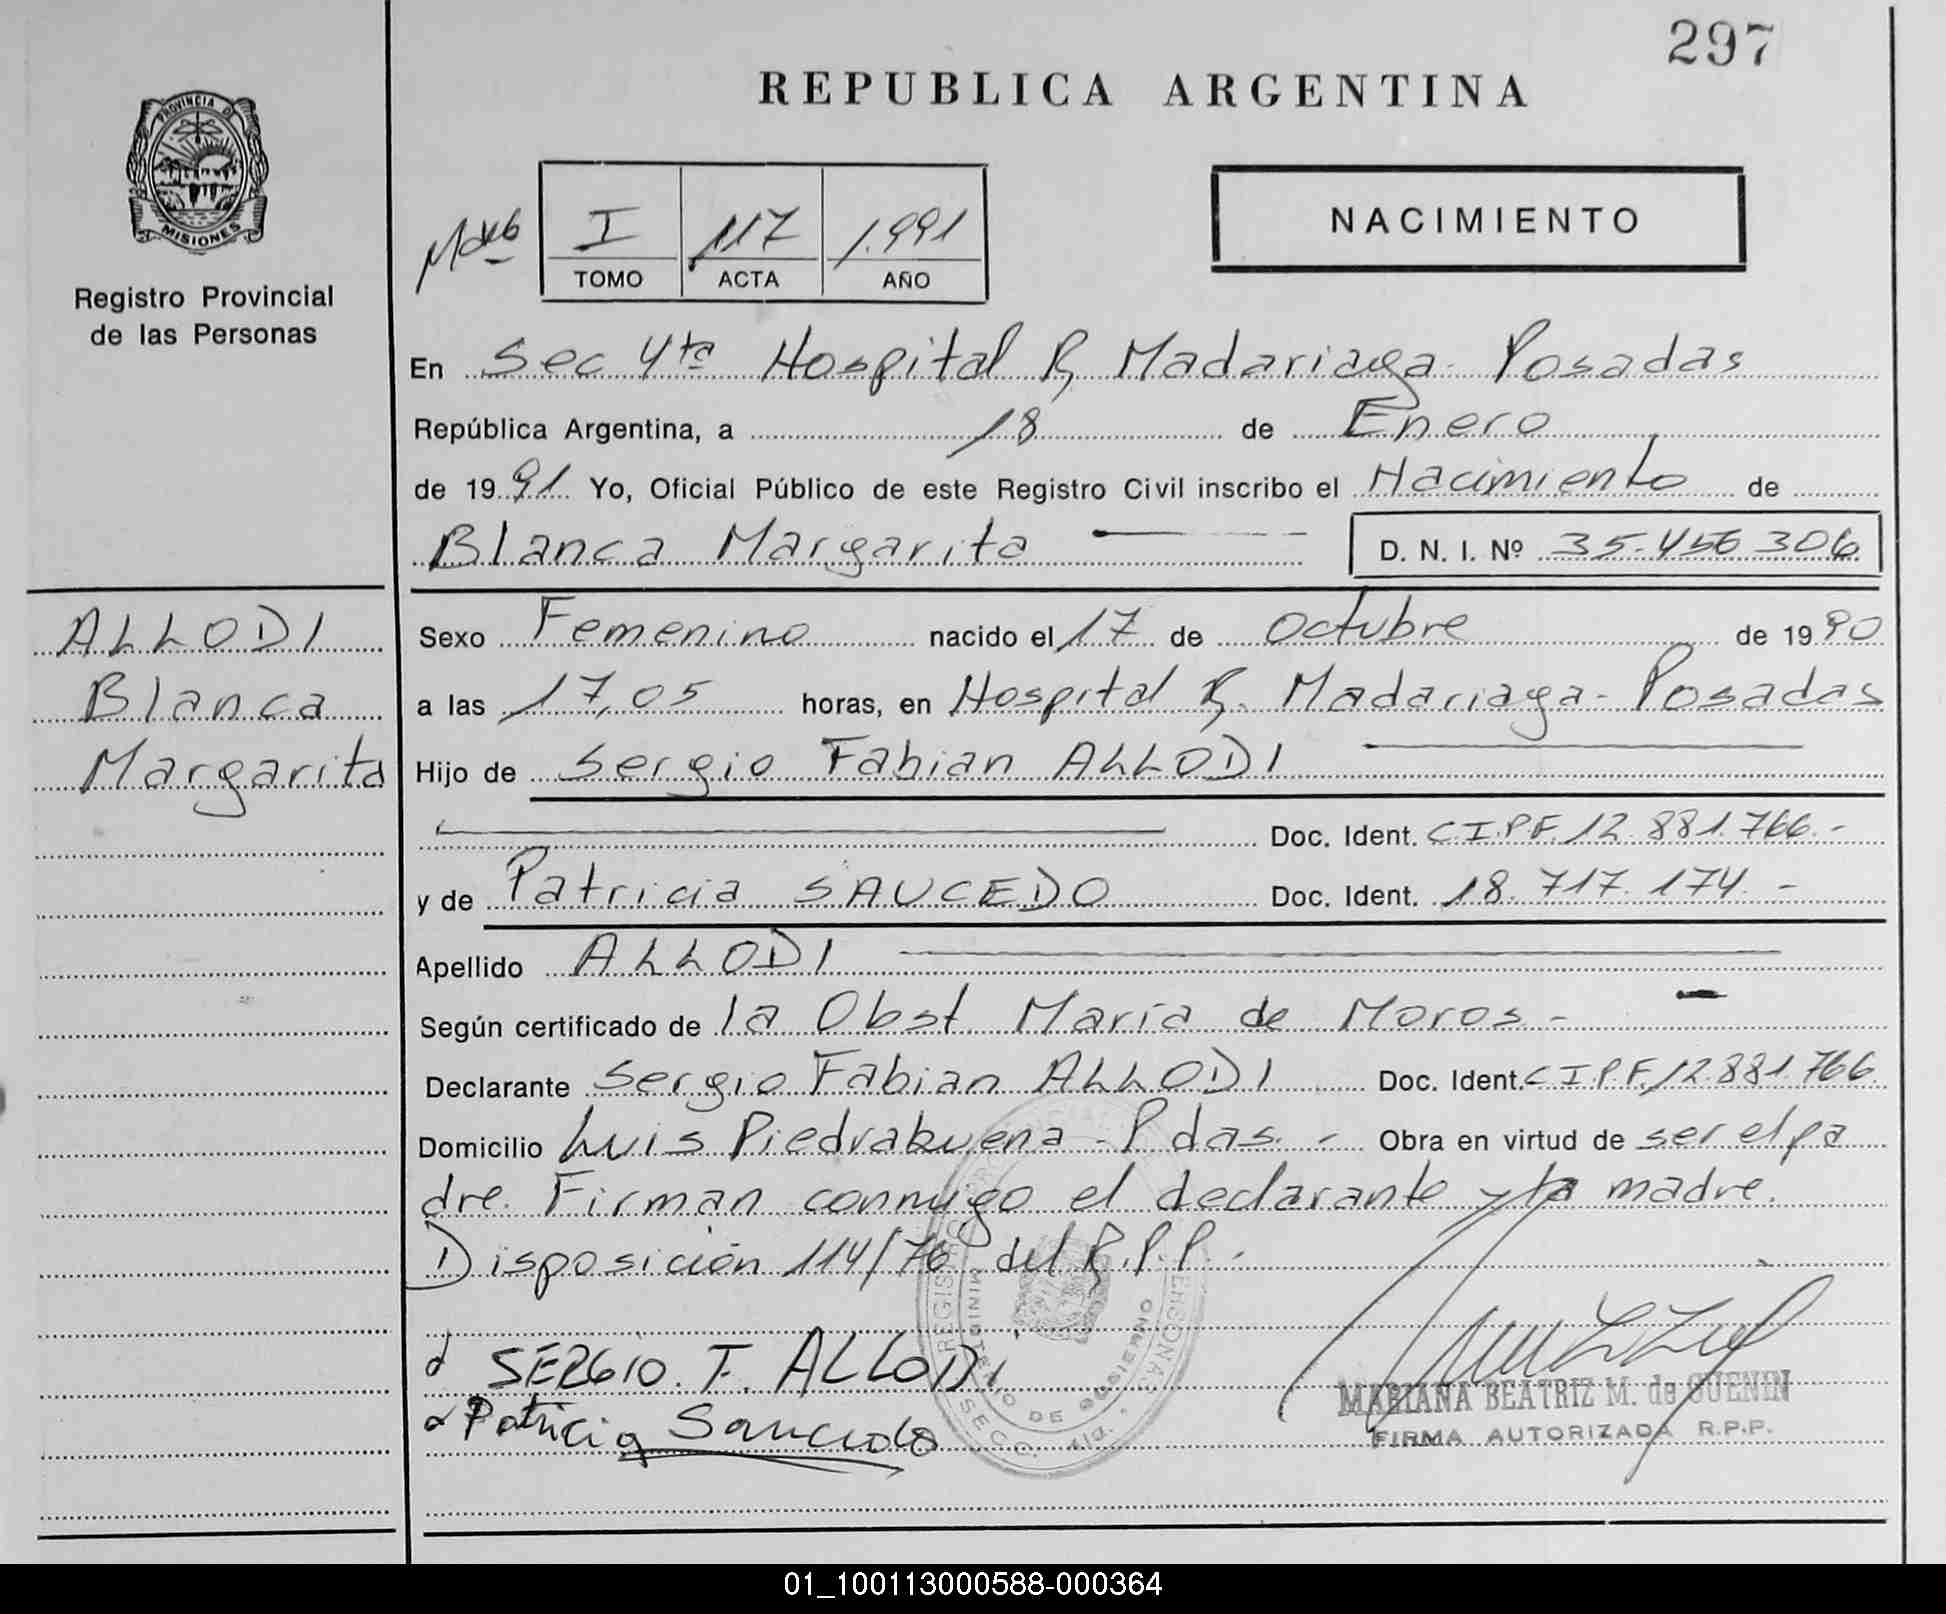 297
REPUBLICA ARGENTINA
PROVINCIA DE
MISIONES
Registro Provincial
de las Personas
NACIMIENTO
I 117 1.991
TOMO ACTA AÑO
En Sec 4ta Hospital R. Madariaga - Posadas
República Argentina, a 18 de Enero
de 1991 Yo, Oficial Público de este Registro Civil inscribo el Nacimiento de
Blanca Margarita D. N. I. Nº 35.456 306
ALLODI
Blanca
Margarita
Sexo Femenino nacido el 17 de Octubre de 1990
a las 17,05 horas, en Hospital R. Madariaga - Posadas
Hijo de Sergio Fabian ALLODI
Doc. Ident. C.I.P.F. 12.881.766.-
y de Patricia SAUCEDO Doc. Ident. 18.717.174.-
Apellido ALLODI
Según certificado de la Obst Maria de Moros -
Declarante Sergio Fabian ALLODI Doc. Ident. C I.P.F. 12.881.766
Domicilio Luis Piedrabuena - Pdas. - Obra en virtud de ser el pa
dre. Firman conmigo el declarante y la madre.
Disposición 114/76 del R.P.P. -
SERGIO. F. ALLODI
Patricia Saucedo
MINISTERIO DE GOBIERNO
MARIANA BEATRIZ M. de GUENIN
FIRMA AUTORIZADA R.P.P.
01_100113000588-000364